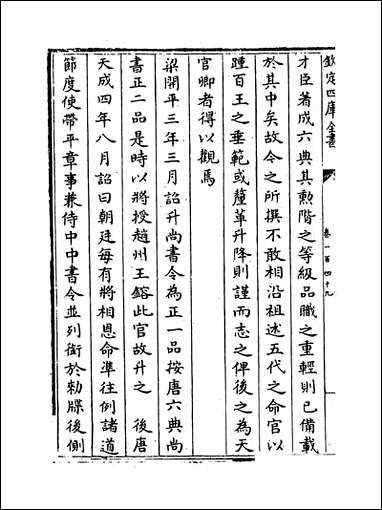 欽定四庫全書
卷一百四十九
才臣著成六典其勲階之等級品職之重輕則已備載
於其中矣故今之所撰不敢相沿祖述五代之命官以
踵百王之垂範或釐革升降則謹而志之俾後之為天
官卿者得以觀焉
梁開平三年三月詔升尚書令為正一品按唐六典尚
書正二品是時以將授趙州王鎔此官故升之　後唐
天成四年八月詔曰朝廷每有將相恩命準往例諸道
節度使帶平章事兼侍中中書令並列銜於勅牒後側